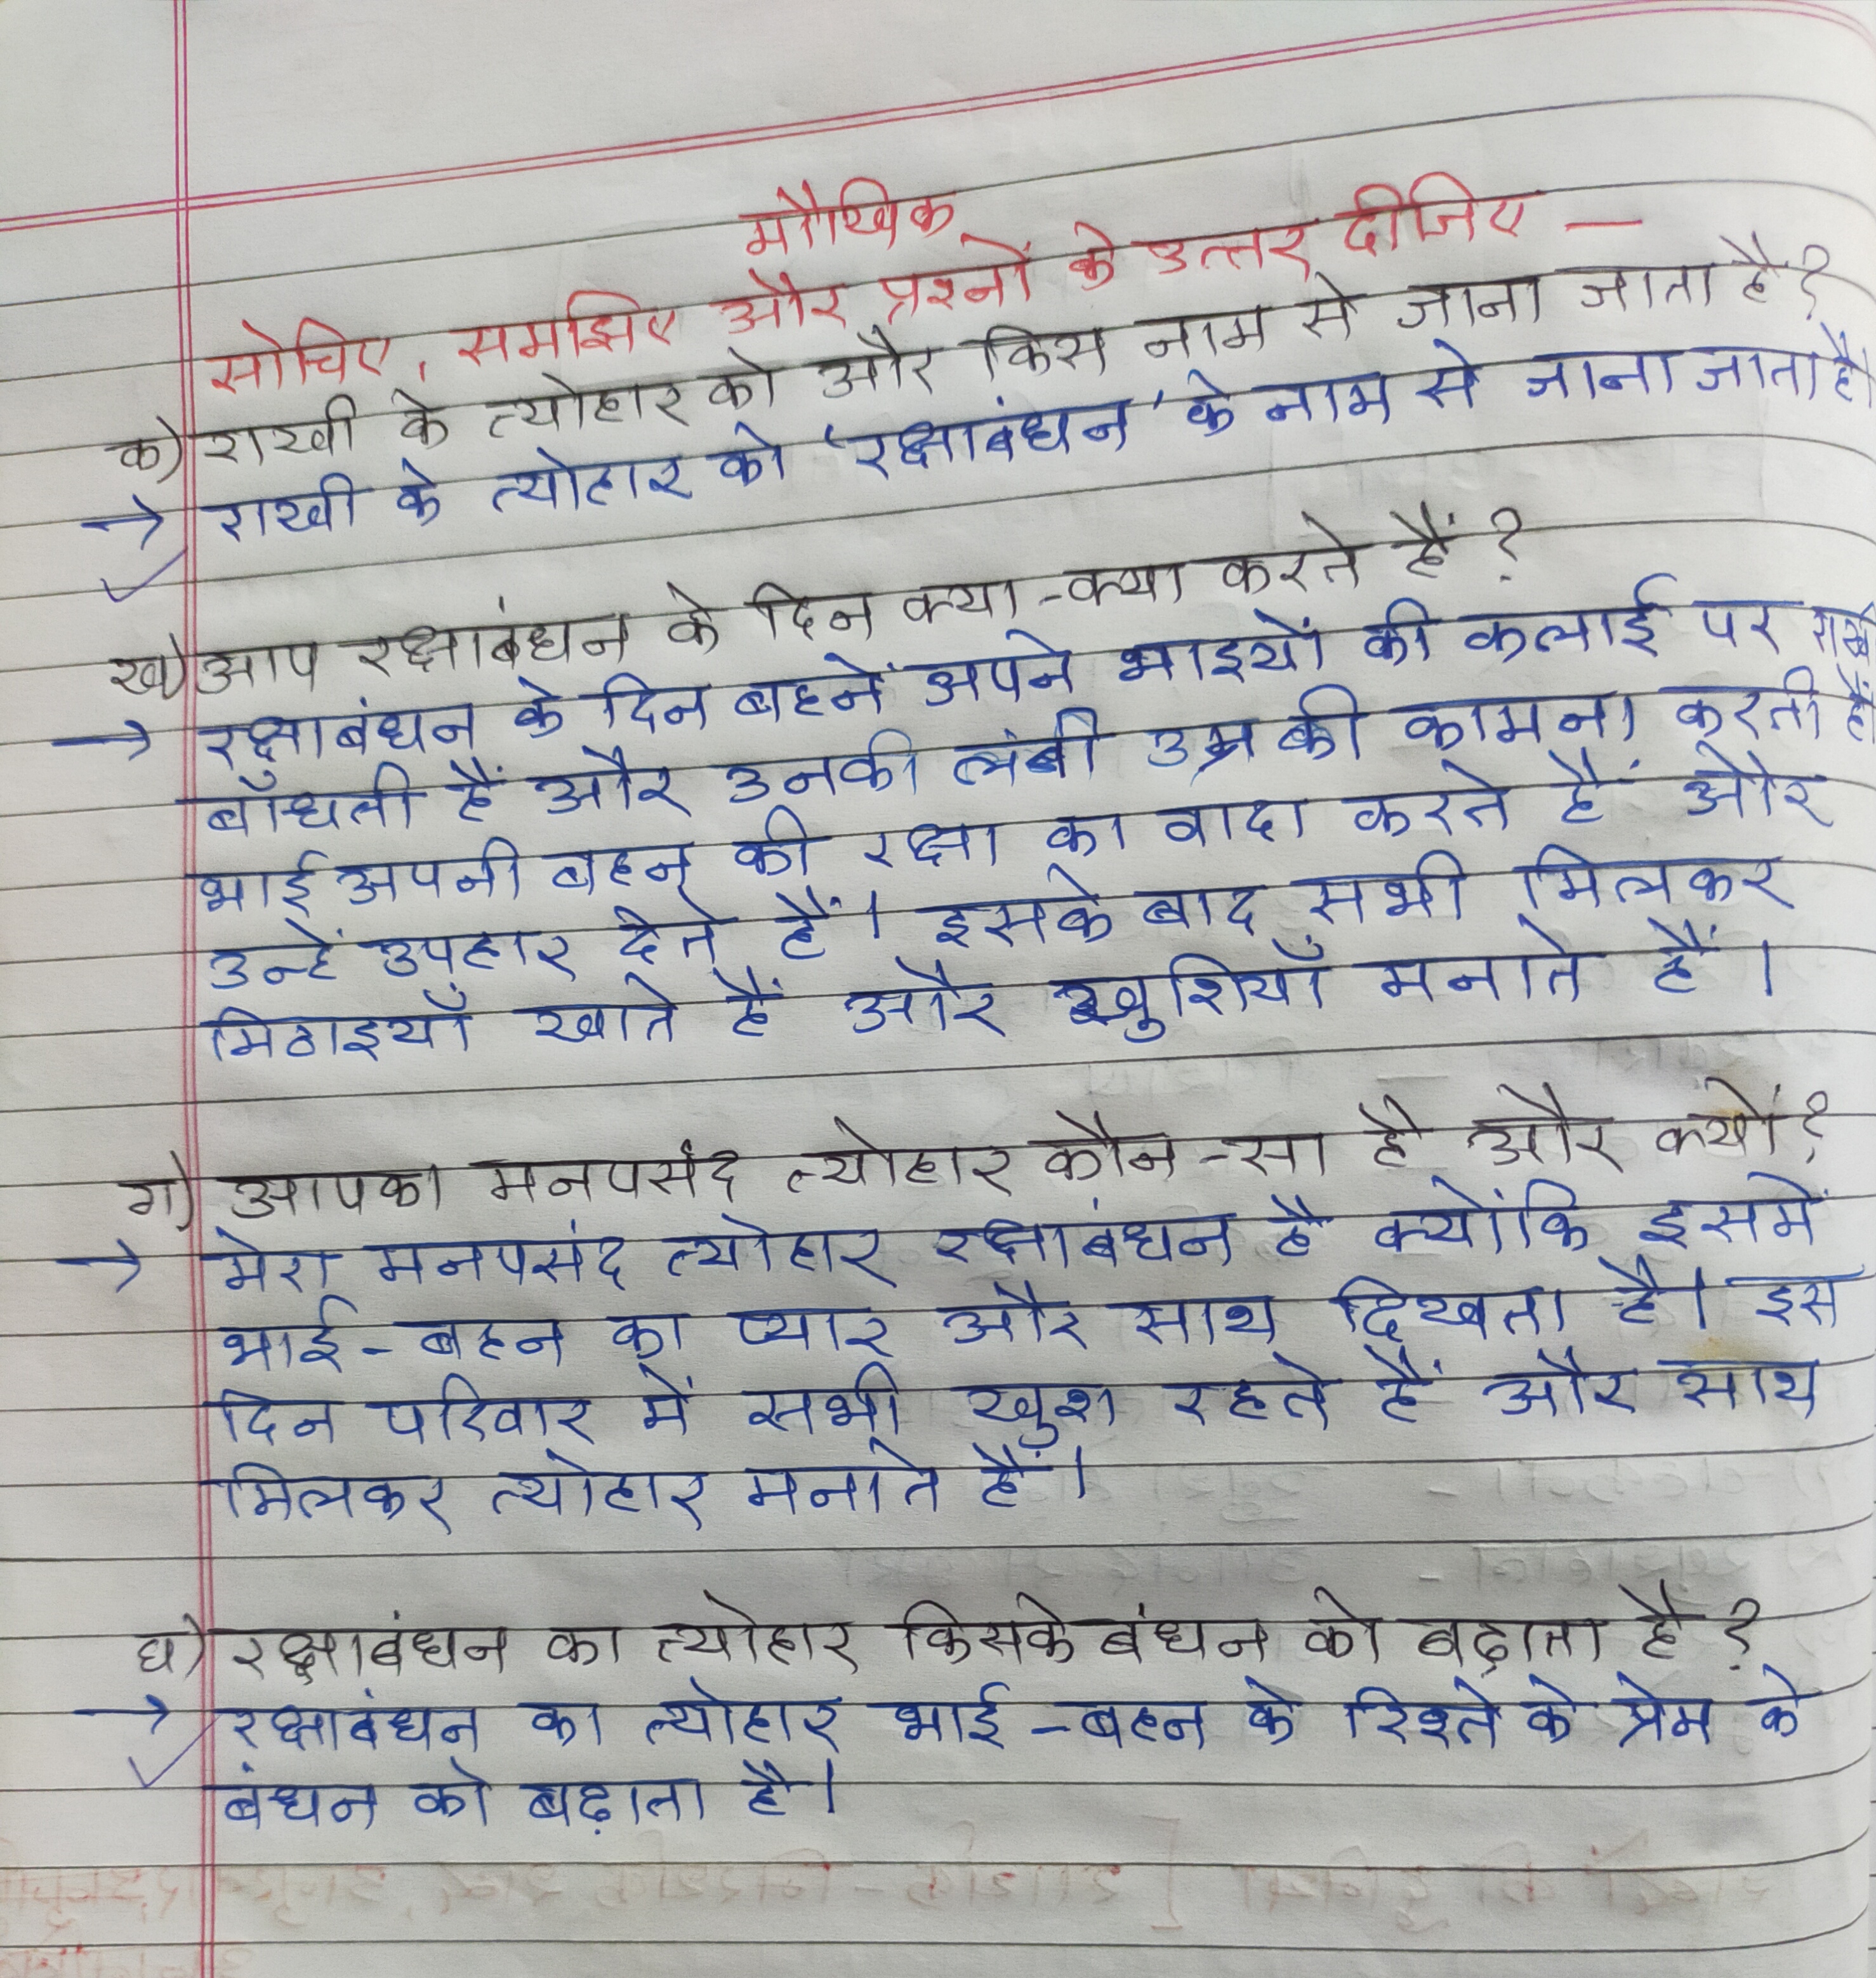 मौखिक
सोचिए, समझिए और प्रश्नों के उत्तर दीजिए —
क) राखी के त्योहार को और किस नाम से जाना जाता है?
→ राखी के त्योहार को 'रक्षाबंधन' के नाम से जाना जाता है।
ख) आप रक्षाबंधन के दिन क्या-क्या करते हैं?
→ रक्षाबंधन के दिन बहनें अपने भाइयों की कलाई पर राखी
बाँधती हैं और उनकी लंबी उम्र की कामना करती हैं
भाई अपनी बहन की रक्षा का वादा करते हैं और
उन्हें उपहार देते हैं। इसके बाद सभी मिलकर
मिठाइयाँ खाते हैं और खुशियाँ मनाते हैं।
ग) आपका मनपसंद त्योहार कौन-सा है और क्यों?
→ मेरा मनपसंद त्योहार रक्षाबंधन है क्योंकि इसमें
भाई-बहन का प्यार और साथ दिखता है। इस
दिन परिवार में सभी खुश रहते हैं और साथ
मिलकर त्योहार मनाते हैं।
घ) रक्षाबंधन का त्योहार किसके बंधन को बढ़ाता है?
→ रक्षाबंधन का त्योहार भाई-बहन के रिश्ते के प्रेम के
बंधन को बढ़ाता है।